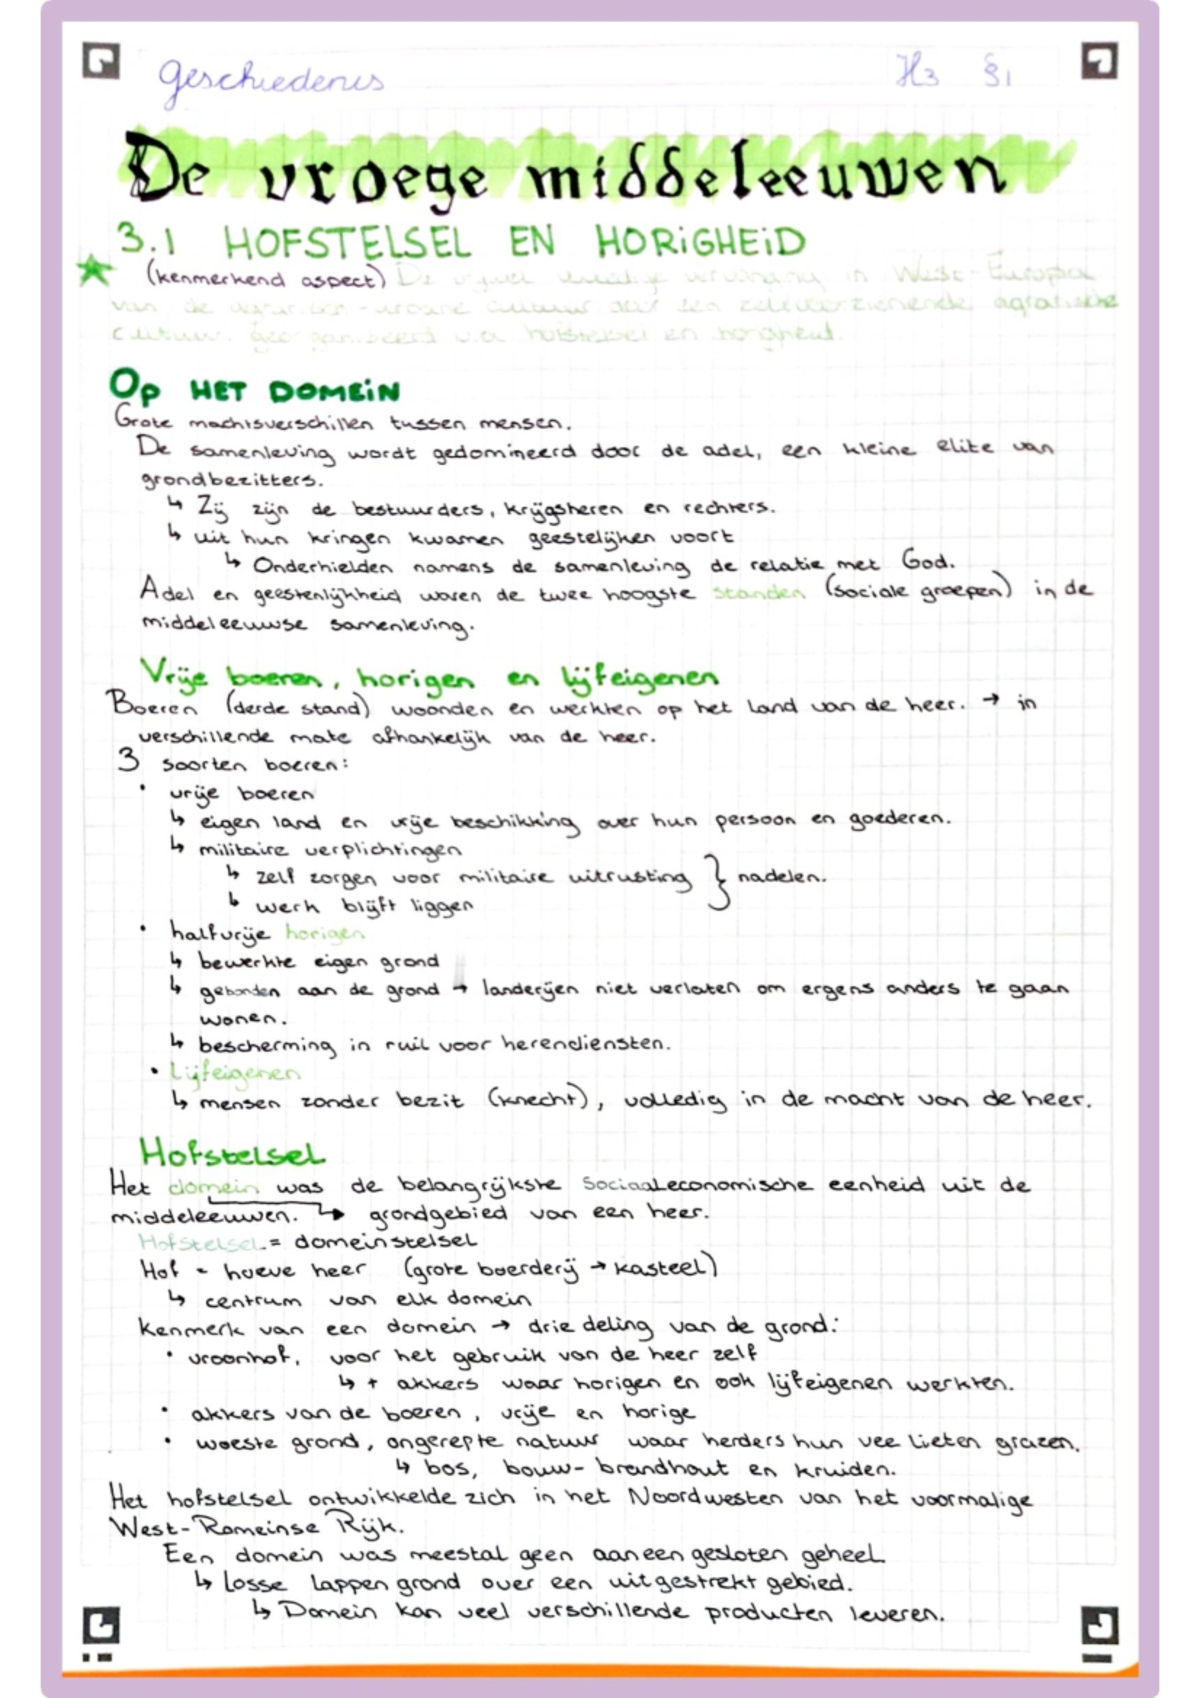 Geschiedenis H3 §1
De vroege middeleeuwen
3.1 HOFSTELSEL EN HORIGHEID
(kenmerkend aspect) De vrijwel volledige verdwijning in West-Europa
van de agrarisch-urbane cultuur door een zelfvoorzienende agrarische
cultuur. georganiseerd v.a hofstelsel en horigheid.
Op HET DOMEIN
Grote machtsverschillen tussen mensen.
De samenleving wordt gedomineerd door de adel, een kleine elite van
grondbezitters.
↳ Zij zijn de bestuurders, krijgsheren en rechters.
↳ uit hun kringen kwamen geestelijken voort
↳ Onderhielden namens de samenleving de relatie met God.
Adel en geestenlijkheid waren de twee hoogste standen (sociale groepen) in de
middeleeuwse samenleving.
Vrije boeren, horigen en lijfeigenen
Boeren (derde stand) woonden en werkten op het land van de heer. → in
verschillende mate afhankelijk van de heer.
3 soorten boeren:
• vrije boeren
↳ eigen land en vrije beschikking over hun persoon en goederen.
↳ militaire verplichtingen
↳ zelf zorgen voor militaire uitrusting } nadelen.
↳ werk blijft liggen
• halfvrije horigen
↳ bewerkte eigen grond
↳ gebonden aan de grond → landerijen niet verlaten om ergens anders te gaan
wonen.
↳ bescherming in ruil voor herendiensten.
• Lijfeigenen
↳ mensen zonder bezit (knecht), volledig in de macht van de heer.
Hofstelsel
Het domein was de belangrijkste Sociaaleconomische eenheid uit de
middeleeuwen. ↳ grondgebied van een heer.
Hofstelsel = domeinstelsel
Hof = hoeve heer (grote boerderij → kasteel)
↳ centrum van elk domein
Kenmerk van een domein → driedeling van de grond:
• vroonhof, voor het gebruik van de heer zelf
↳ + akkers waar horigen en ook lijfeigenen werkten.
• akkers van de boeren, vrije en horige
• woeste grond, ongerepte natuur waar herders hun vee lieten grazen.
↳ bos, bouw- brandhout en kruiden.
Het hofstelsel ontwikkelde zich in het Noordwesten van het voormalige
West-Romeinse Rijk.
Een domein was meestal geen aaneengesloten geheel
↳ Losse lappen grond over een uitgestrekt gebied.
↳ Domein kan veel verschillende producten leveren.